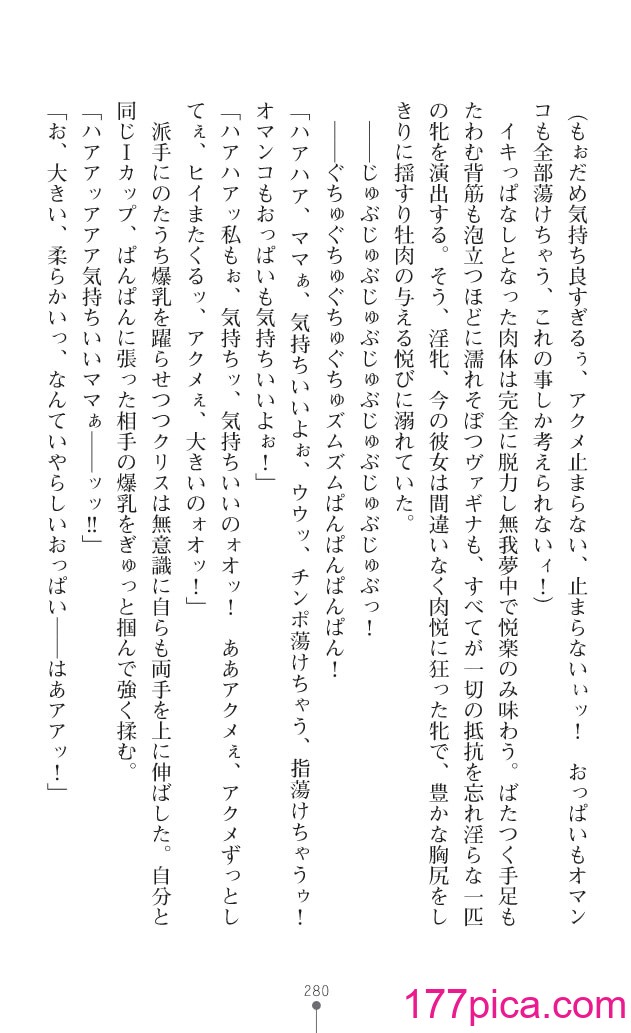 (もぉだめ気持ち良すぎるぅ、アクメ止まらない、止まらないぃッ！　おっぱいもオマン
コも全部蕩けちゃう、これの事しか考えられないィ！)
　イキっぱなしとなった肉体は完全に脱力し無我夢中で悦楽のみ味わう。ばたつく手足も
たわむ背筋も泡立つほどに濡れそぼつヴァギナも、すべてが一切の抵抗を忘れ淫らな一匹
の牝を演出する。そう、淫牝、今の彼女は間違いなく肉悦に狂った牝で、豊かな胸尻をし
きりに揺すり牡肉の与える悦びに溺れていた。
　――じゅぶじゅぶじゅぶじゅぶじゅぶじゅぶっ！
　――ぐちゅぐちゅぐちゅぐちゅズムズムぱんぱんぱんぱん！
「ハアハア、ママぁ、気持ちいいよぉ、ウウッ、チンポ蕩けちゃう、指蕩けちゃうゥ！
オマンコもおっぱいも気持ちいいよぉ！」
「ハアハアッ私もぉ、気持ちッ、気持ちいいのォオッ！　ああアクメぇ、アクメずっとし
てぇ、ヒイまたくるッ、アクメぇ、大きいのォオッ！」
　派手にのたうち爆乳を躍らせつつクリスは無意識に自らも両手を上に伸ばした。自分と
同じＩカップ、ぱんぱんに張った相手の爆乳をぎゅっと掴んで強く揉む。
「ハアアッアアア気持ちいいママぁ――ッッ‼」
「お、大きい、柔らかいっ、なんていやらしいおっぱい――はあアアッ！」
280
177pica.com